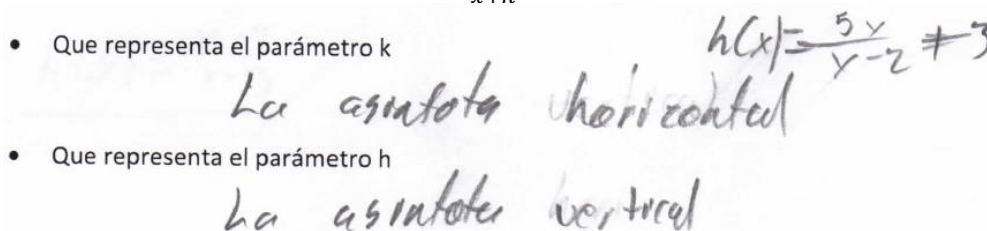 • Que representa el parámetro k
h(x)=5x/x-2 + 3
La asintota horizontal
• Que representa el parámetro h
La asintota vertical